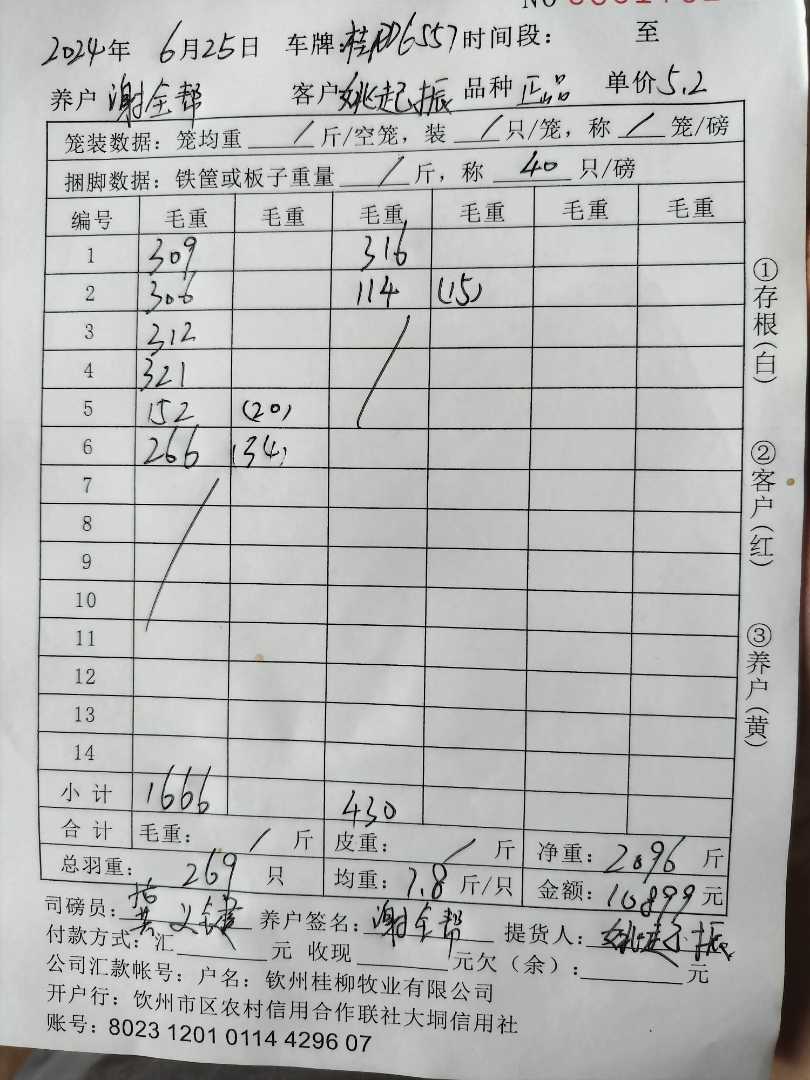 2024年 6月25日 车牌:桂PD6557 时间段: 至
养户 谢全帮 客户 姚起振 品种 正品 单价 5.2
笼装数据: 笼均重 / 斤/空笼, 装 / 只/笼, 称 / 笼/磅
捆脚数据: 铁筐或板子重量 / 斤, 称 40 只/磅
编号 毛重 毛重 毛重 毛重 毛重 毛重
1 309 316
2 306 114 (15)
3 312
4 321
5 152 (20)
6 266 (34)
7
8
9
10
11
12
13
14
小计 1666 430
合计 毛重: / 斤 皮重: / 斤 净重: 2096 斤
总羽重: 269 只 均重: 7.8 斤/只 金额: 10899 元
司磅员: 养户签名: 谢全帮 提货人: 姚起振
付款方式: 汇 元 收现 元欠(余): 元
公司汇款帐号: 户名: 钦州桂柳牧业有限公司
开户行: 钦州市区农村信用合作联社大垌信用社
账号: 8023 1201 0114 4296 07
①存根(白)
②客户(红)
③养户(黄)